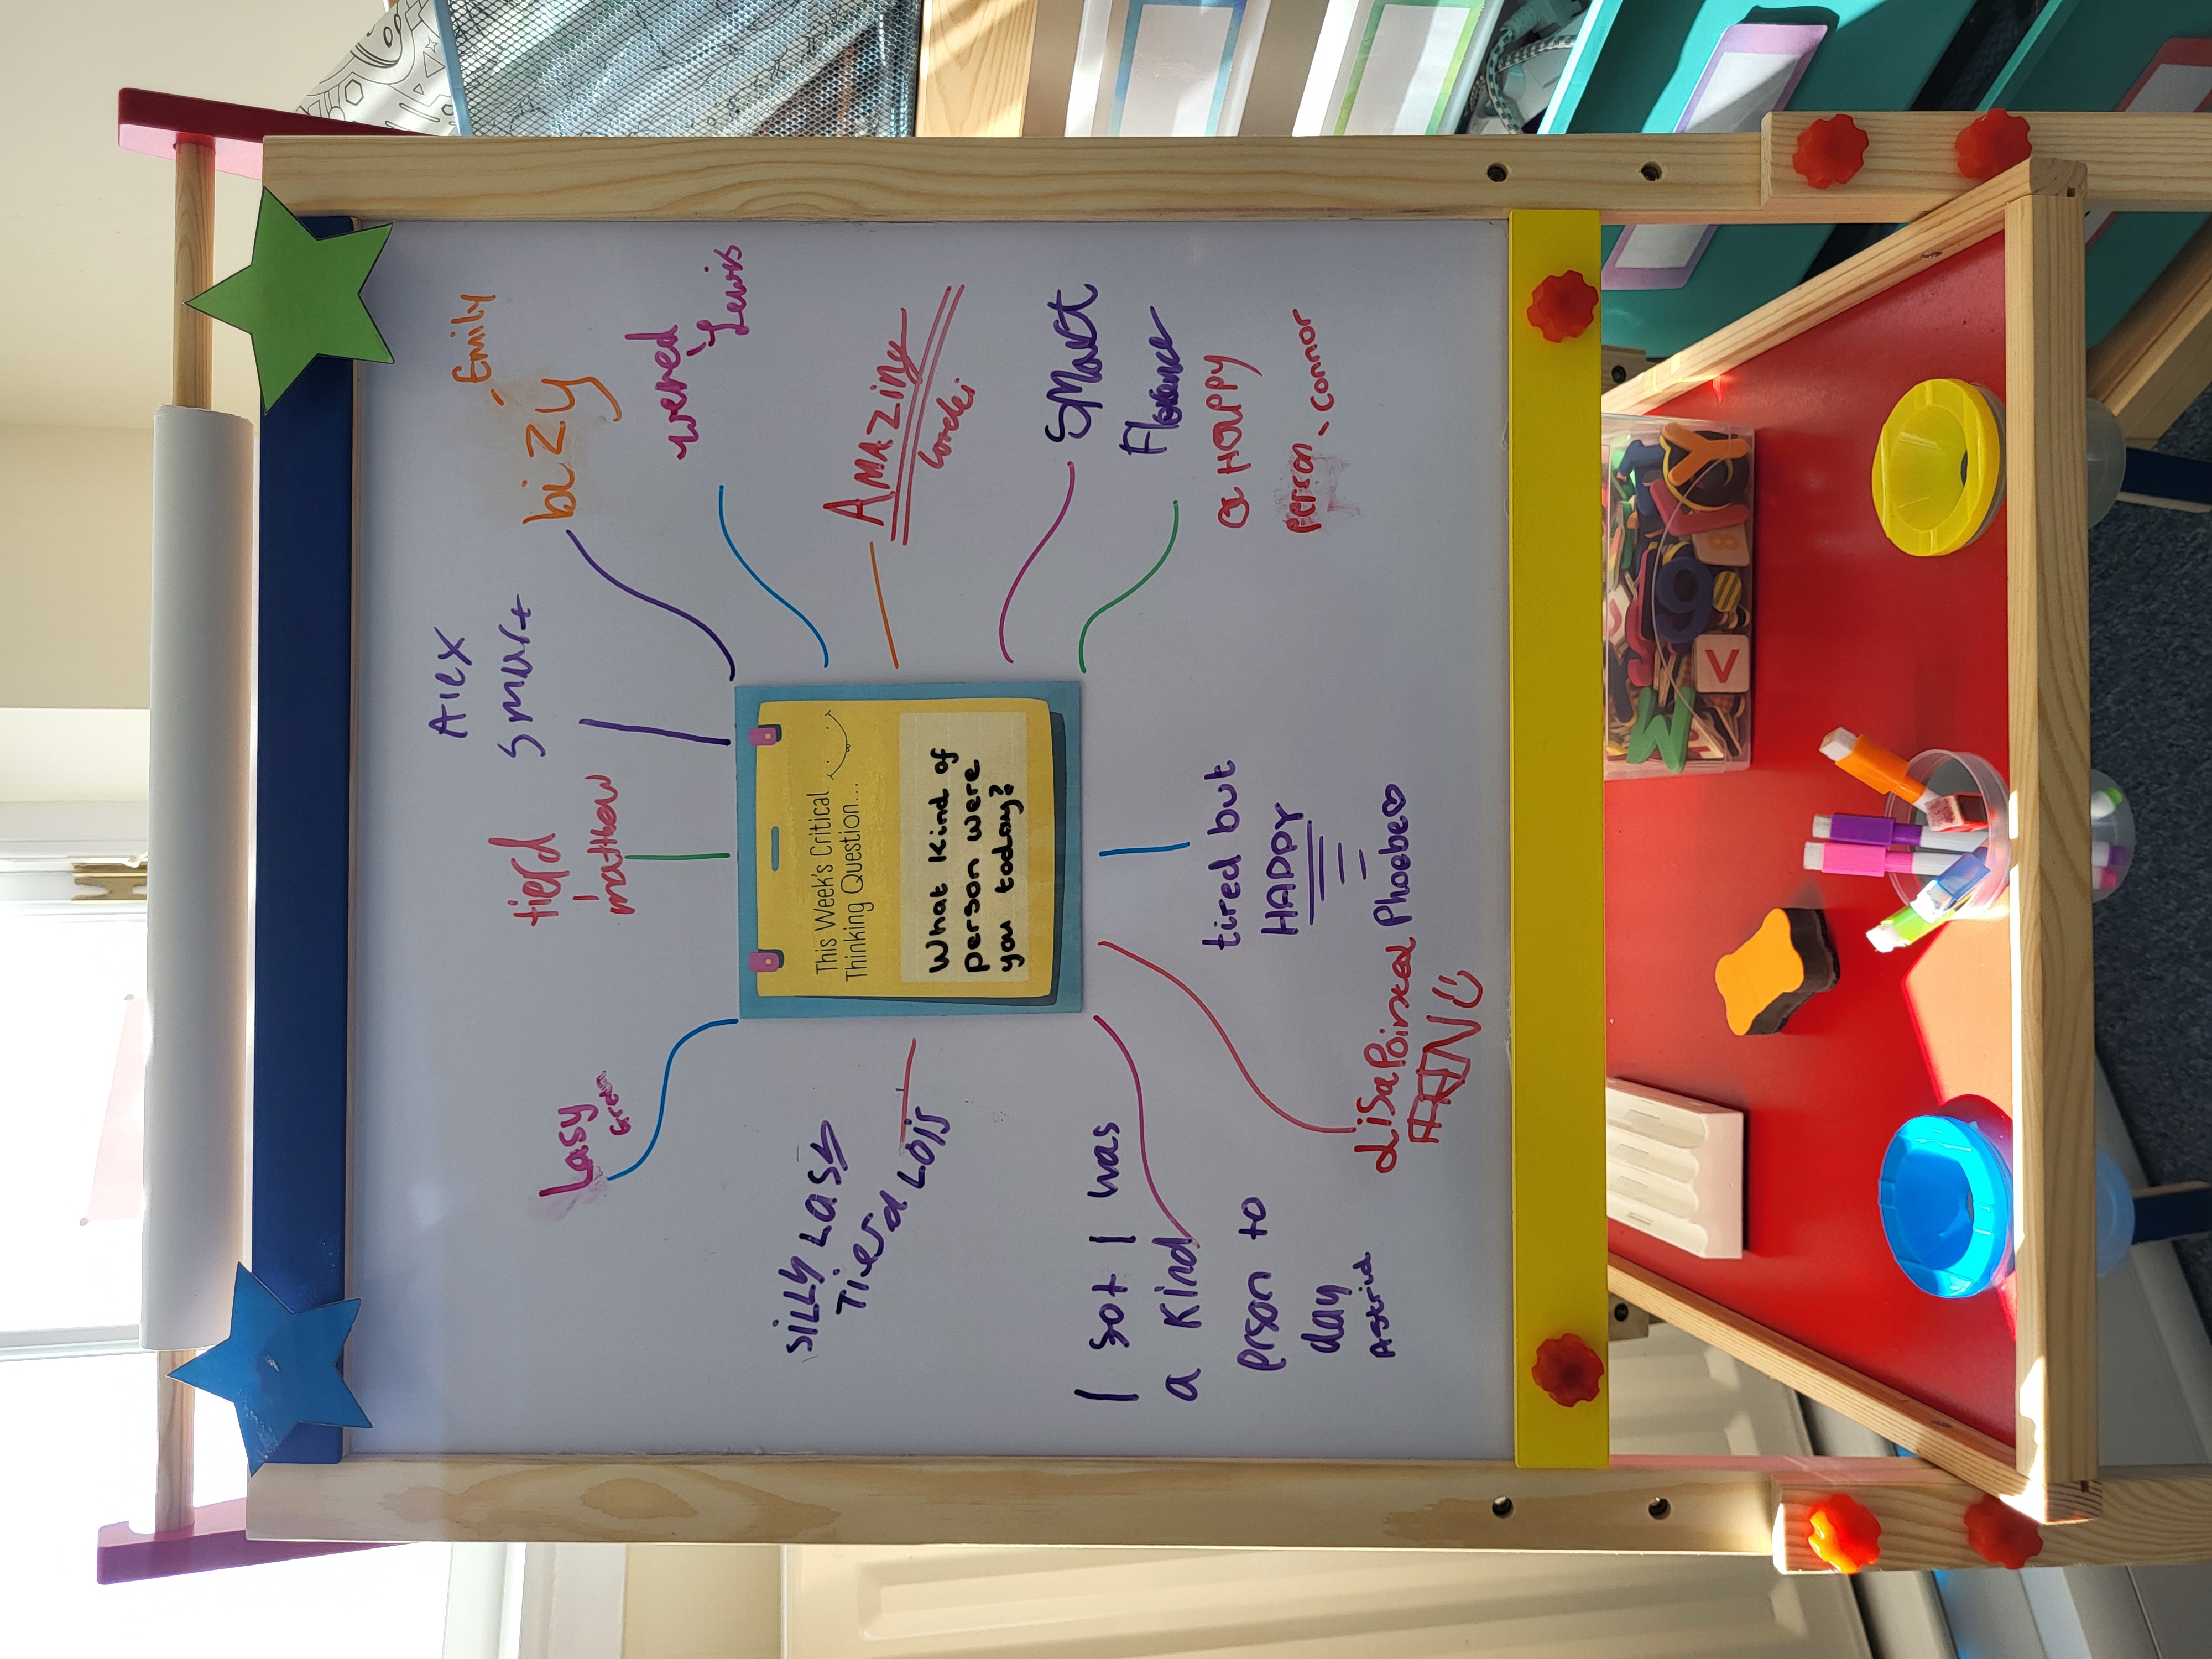 This Week's Critical
Thinking Question...
What Kind of
person were
you today?
Lasy
tierd
matthew
Alex
smart
bizy
- Emily
wered
- Lewis
AMAZING
SMart
Florence
a HAPPY
person - connor
tired but
HAPPY
Phoebe
disaPoinxed
FINN
I sot I was
a Kind
prson to
day
Astrid
SILLY LASY
Tierd Lois
M
V
Y
9
8